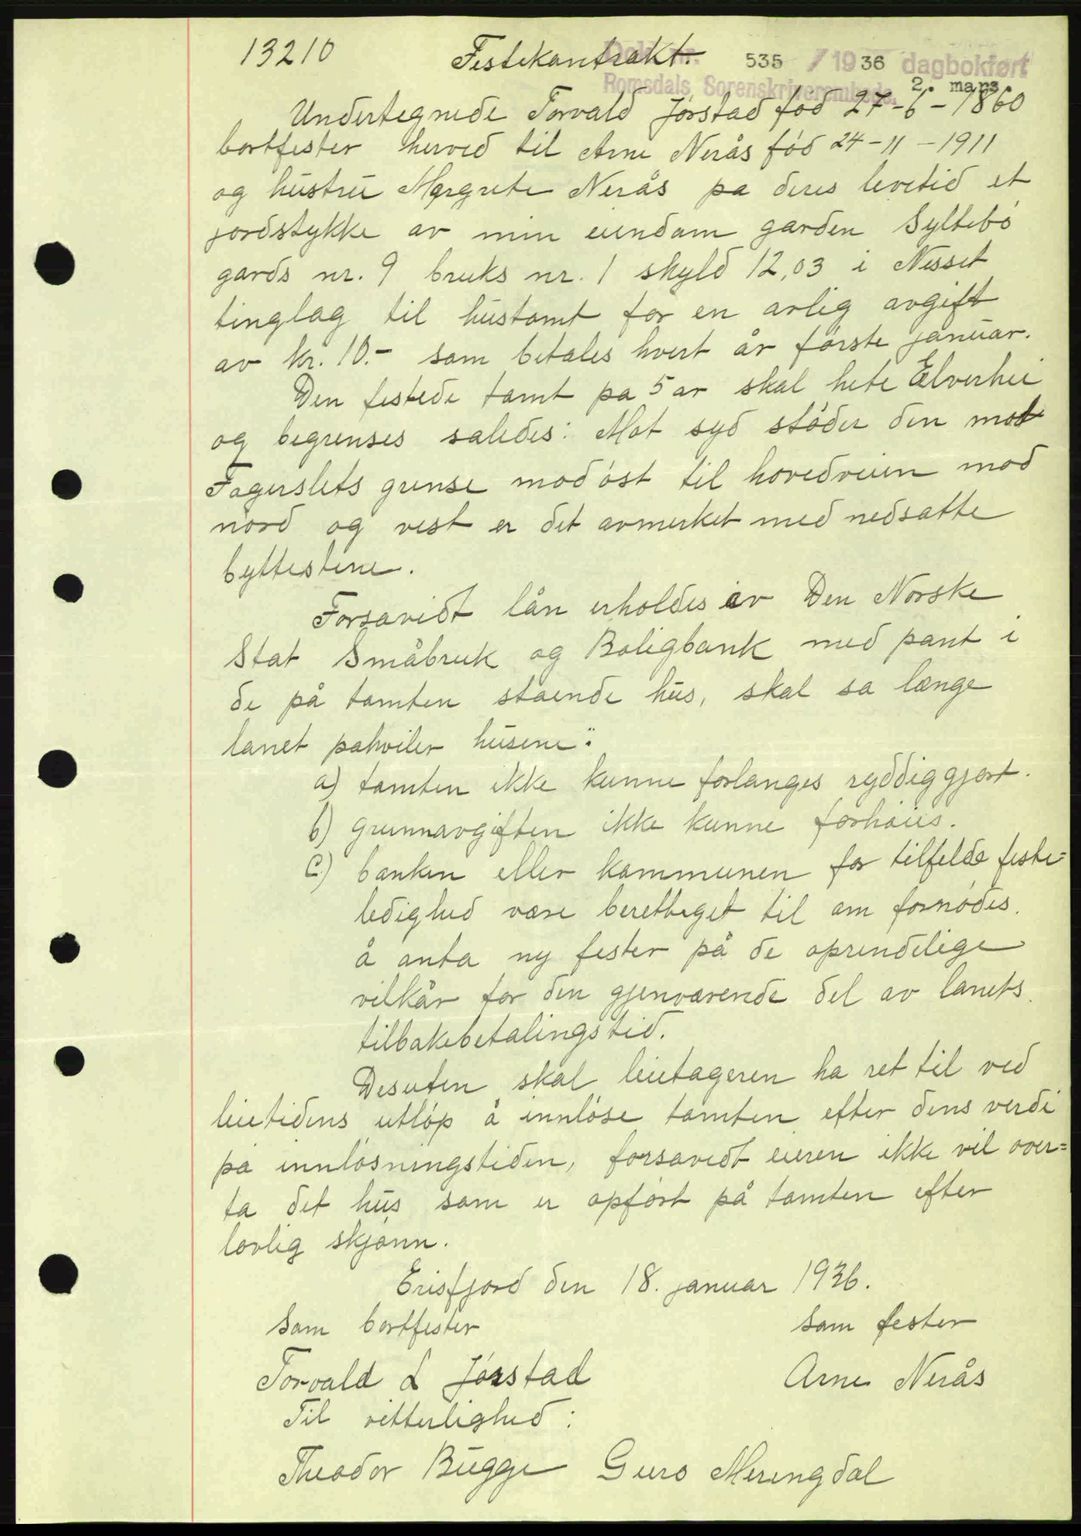 13210 Festekontrakt. Dok. nr. 535 / 1936 dagbokført
Romsdals Sorenskriverembede 2. mars.
Undertegnede Torvald Jørstad fød 27-6-1860
bortfester herved til Arne Nerås fød 24-11-1911
og hustru Margrete Nerås pa deres levetid et
jordstykke av min eiendom garden Syltebø
gards nr. 9 bruks nr. 1 skyld 12,03 i Nesset
tinglag til hustomt for en arlig avgift
av kr. 10.- som betales hvert år første januar.
Den festede tomt pa 5 ar skal hete Elverhei
og begrenses saledes: Mot syd støder den mod
Fagerslets grense mod øst til hovedveien mod
nord og vest er det avmerket med nedsatte
byttestene.
Forsavidt lån erholdes av Den Norske
Stat Småbruk og Boligbank med pant i
de på tomten staende hus, skal sa længe
lanet pahviler husene:
a) tomten ikke kunne forlanges ryddiggjort.
b) grunnavgiften ikke kunne forhøies.
c) banken eller kommunen for tilfelde feste=
ledighed være berettiget til om fornødes.
å anta ny fester på de oprindelige
vilkår for den gjenværende del av lanets
tilbakebetalingstid.
Desuten skal leietageren ha ret til ved
leietidens utløp å innløse tomten efter dens verdi
pa innløsningstiden, forsavidt eieren ikke vil over=
ta det hus som er opført på tomten efter
lovlig skjønn.
Erisfjord den 18. januar 1936.
Som bortfester Som fester
Torvald L Jørstad Arne Nerås
Til vitterlighed:
Theodor Bugge Guro Meringdal